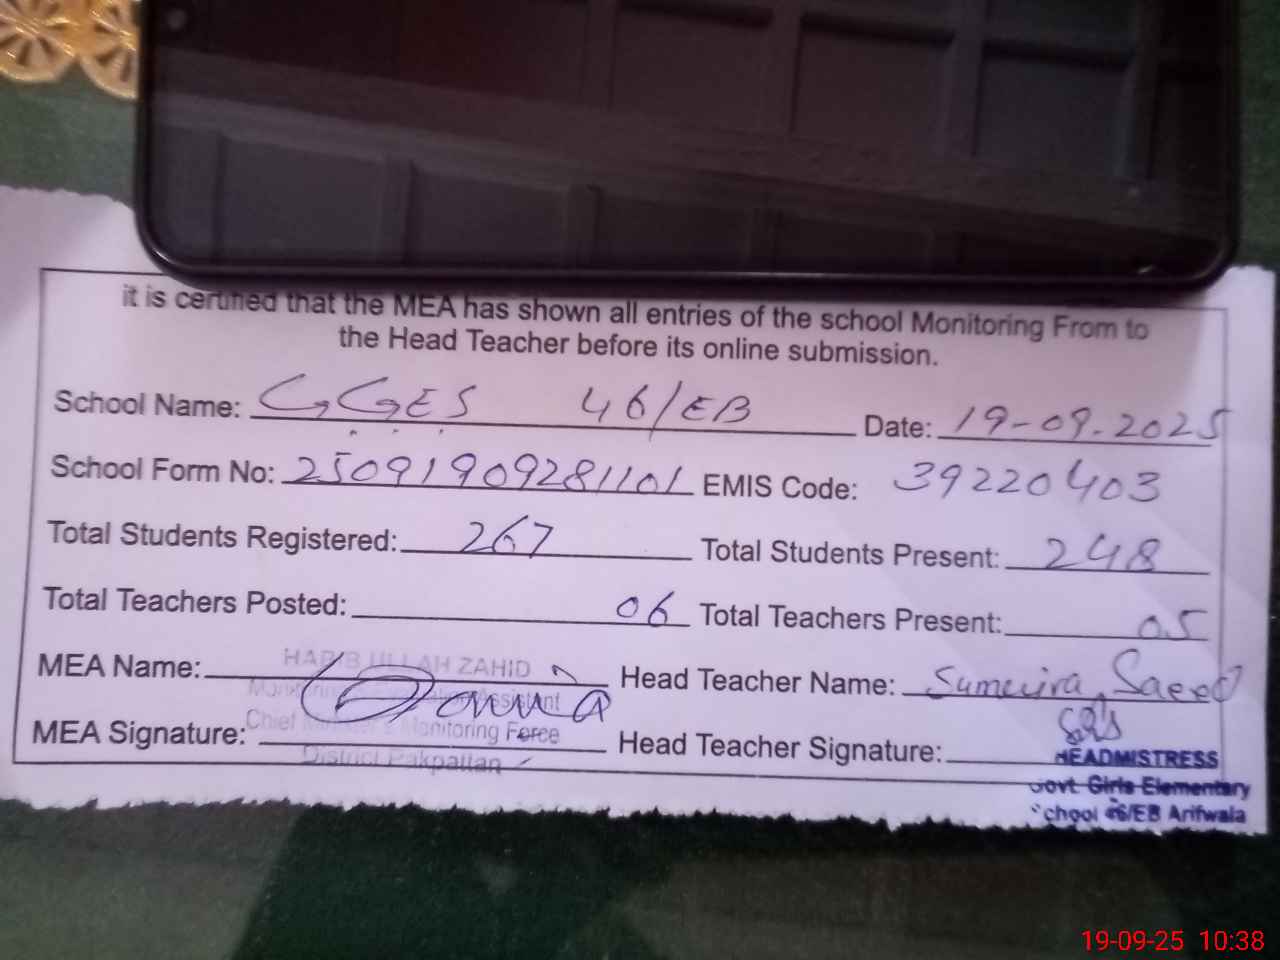 it is certified that the MEA has shown all entries of the school Monitoring From to
the Head Teacher before its online submission.
School Name: GGES 46/EB Date: 19-09-2025
School Form No: 25091909281101 EMIS Code: 39220403
Total Students Registered: 267 Total Students Present: 248
Total Teachers Posted: 06 Total Teachers Present: 05
MEA Name: HABIB ULLAH ZAHID Head Teacher Name: Sumeira Saeed
Monitoring & Evaluation Assistant
Chief Minister's Monitoring Force
MEA Signature: Head Teacher Signature:
District Pakpattan
HEADMISTRESS
Govt. Girls Elementary
School 46/EB Arifwala
19-09-25 10:38